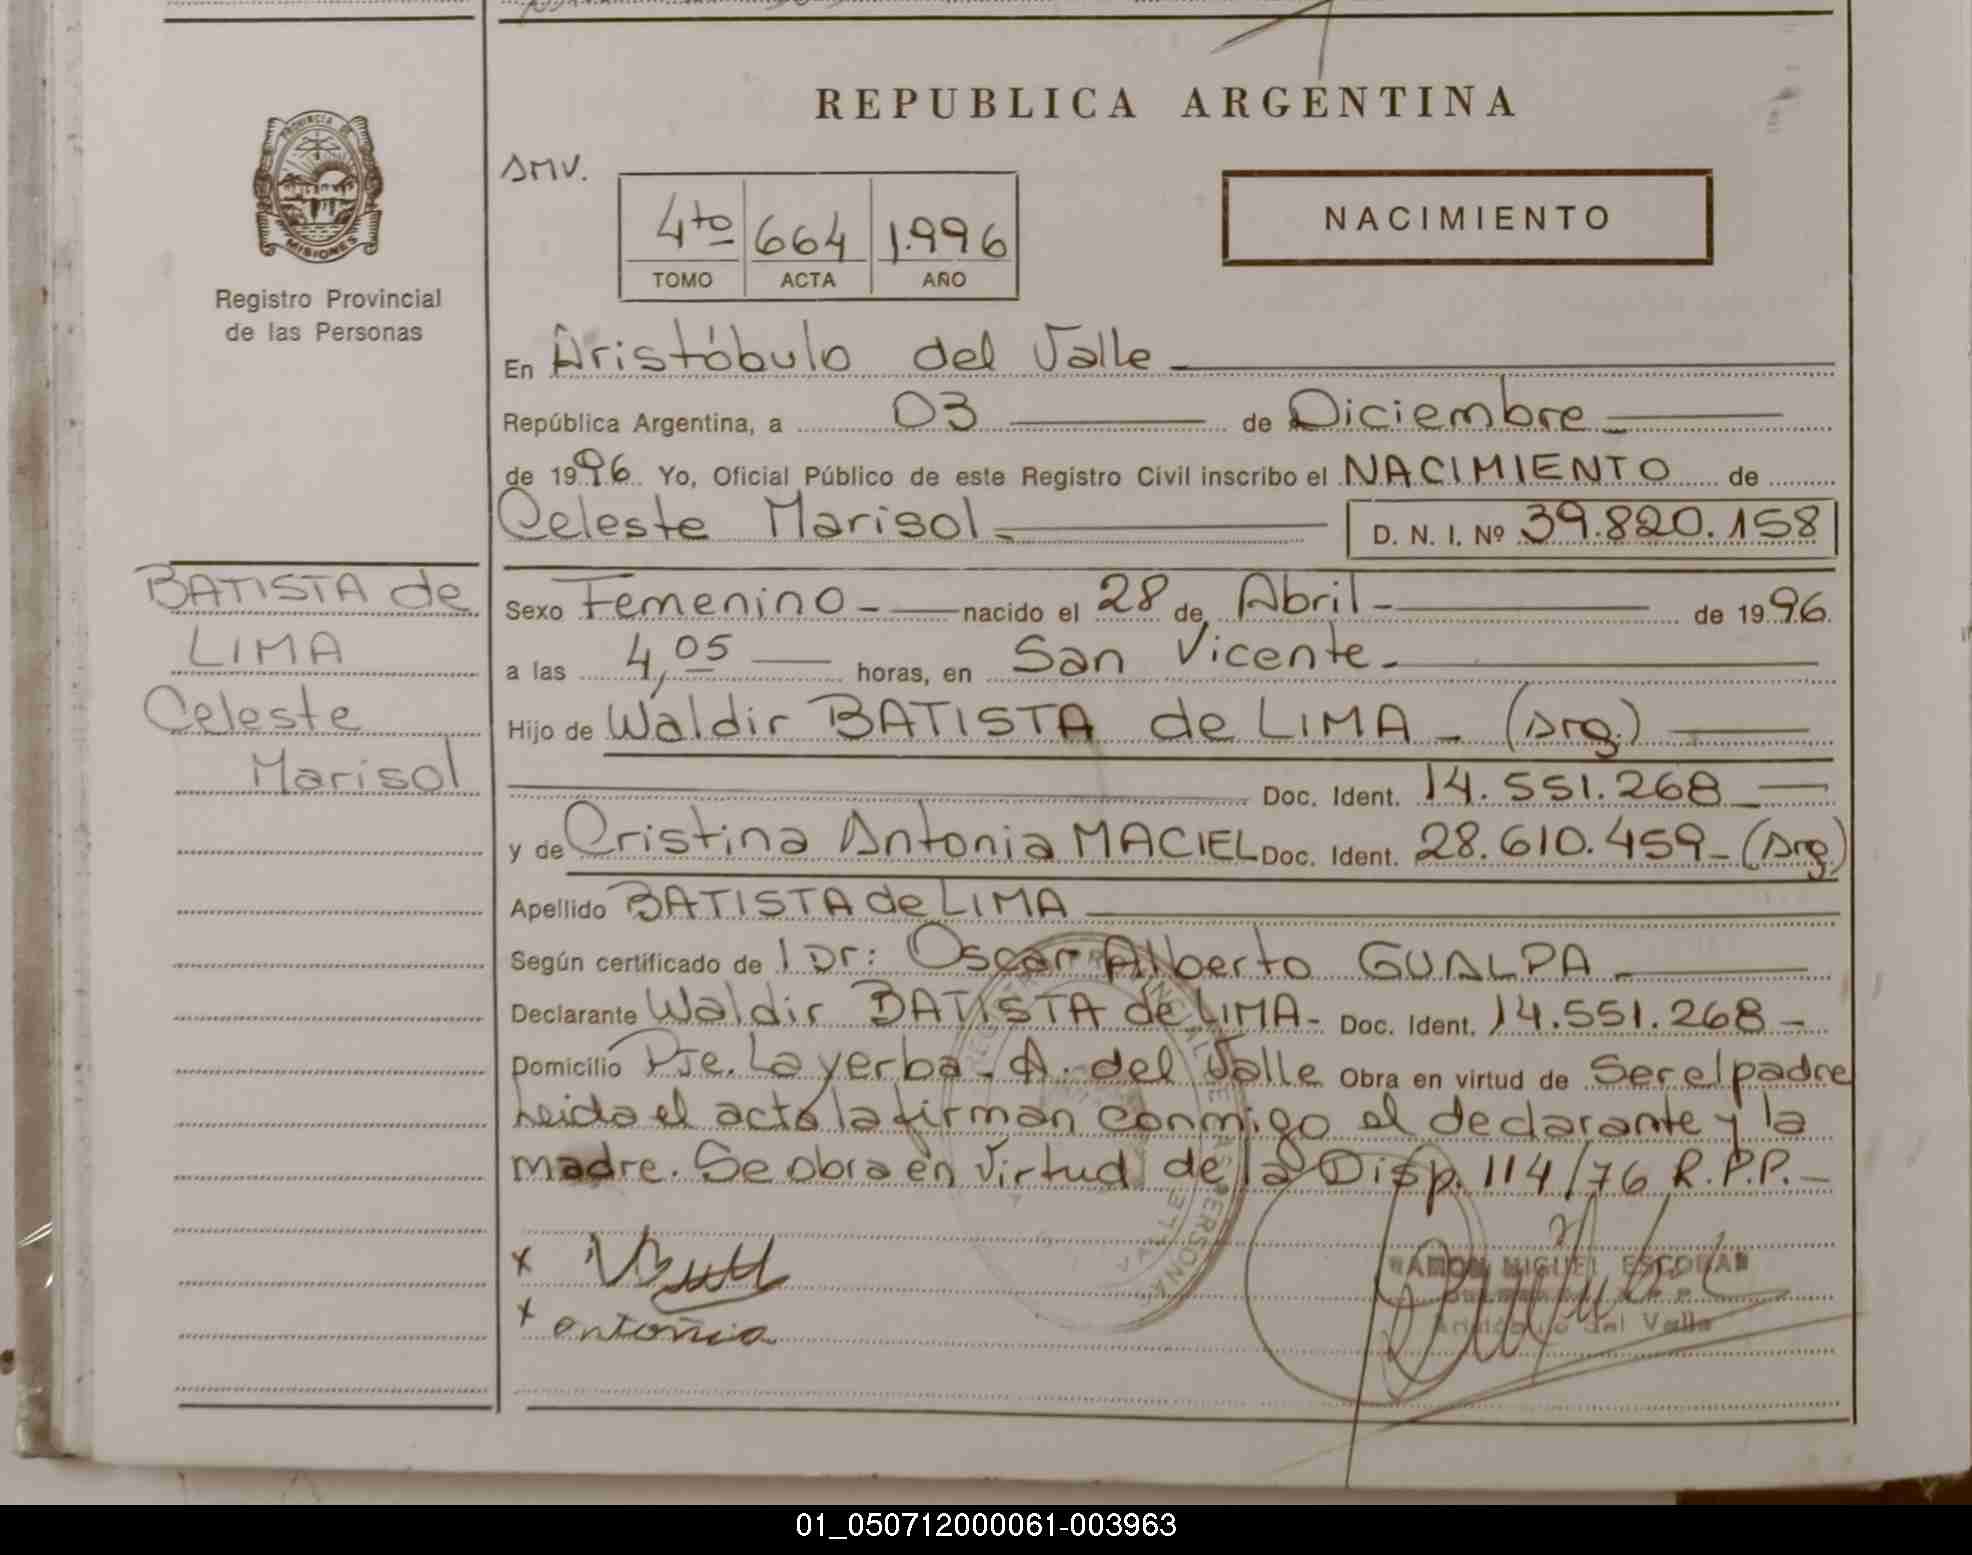 REPUBLICA ARGENTINA
PROVINCIA DE
MISIONES
Registro Provincial
de las Personas
SMV.
4to 664 1.996
TOMO ACTA AÑO
NACIMIENTO
En Aristóbulo del Valle
República Argentina, a 03 de Diciembre
de 1996. Yo, Oficial Público de este Registro Civil inscribo el NACIMIENTO de
Celeste Marisol D. N. I. Nº 39.820.158
BATISTA de
LIMA
Celeste
Marisol
Sexo Femenino - nacido el 28 de Abril - de 1996.
a las 4,05 horas, en San Vicente.
Hijo de Waldir BATISTA de LIMA - (Arg.)
Doc. Ident. 14.551.268
y de Cristina Antonia MACIEL Doc. Ident. 28.610.459 - (Arg.)
Apellido BATISTA de LIMA
Según certificado de l Dr: Oscar Alberto GUALPA
Declarante Waldir BATISTA de LIMA - Doc. Ident. 14.551.268 -
Domicilio Pje. La yerba - A. del Valle Obra en virtud de Ser el padre
Leida el acta la firman conmigo el declarante y la
madre. Se obra en Virtud de la Disp. 114/76 R.P.P. -
x
x antonia
RAMON MIGUEL ESCOBAR
Aristóbulo del Valle
01_050712000061-003963